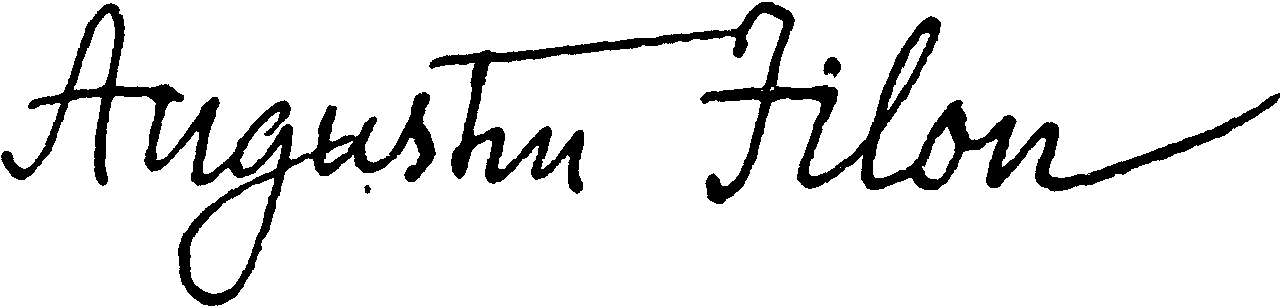 Augustin Filon